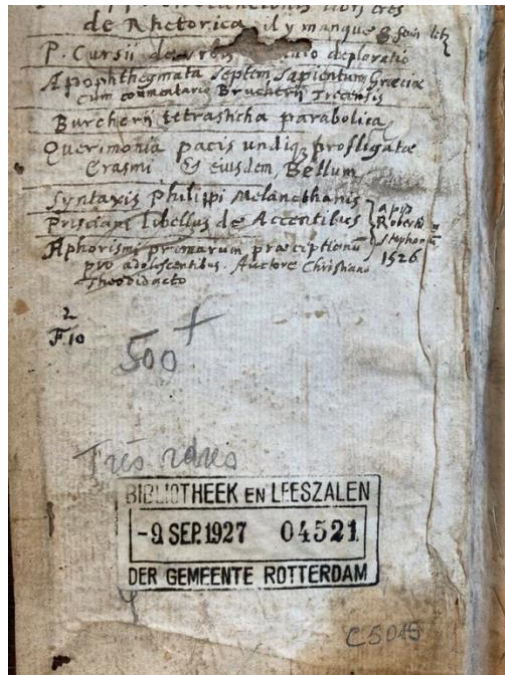 de Rhetorica, il y manque
P. Cursii de urbis deploratio
Apophthegmata Septem Sapientum Græciæ
cum commentario Brucherii Trecensis
Burcherii tetrasticha parabolica
Querimonia pacis undiq; profligatæ
Erasmi & eiusdem, Bellum
Syntaxis Philippi Melancthonis
Prisciani libellus de Accentibus
apud
Robertū
Stephanū
1526
Aphorismi primarum præceptionū
pro adolescentibus. Auctore Christiano
Theodidacto
2
F 10
500 +
Très rares
BIBLIOTHEEK EN LEESZALEN
-9 SEP. 1927 04521
DER GEMEENTE ROTTERDAM
C5045